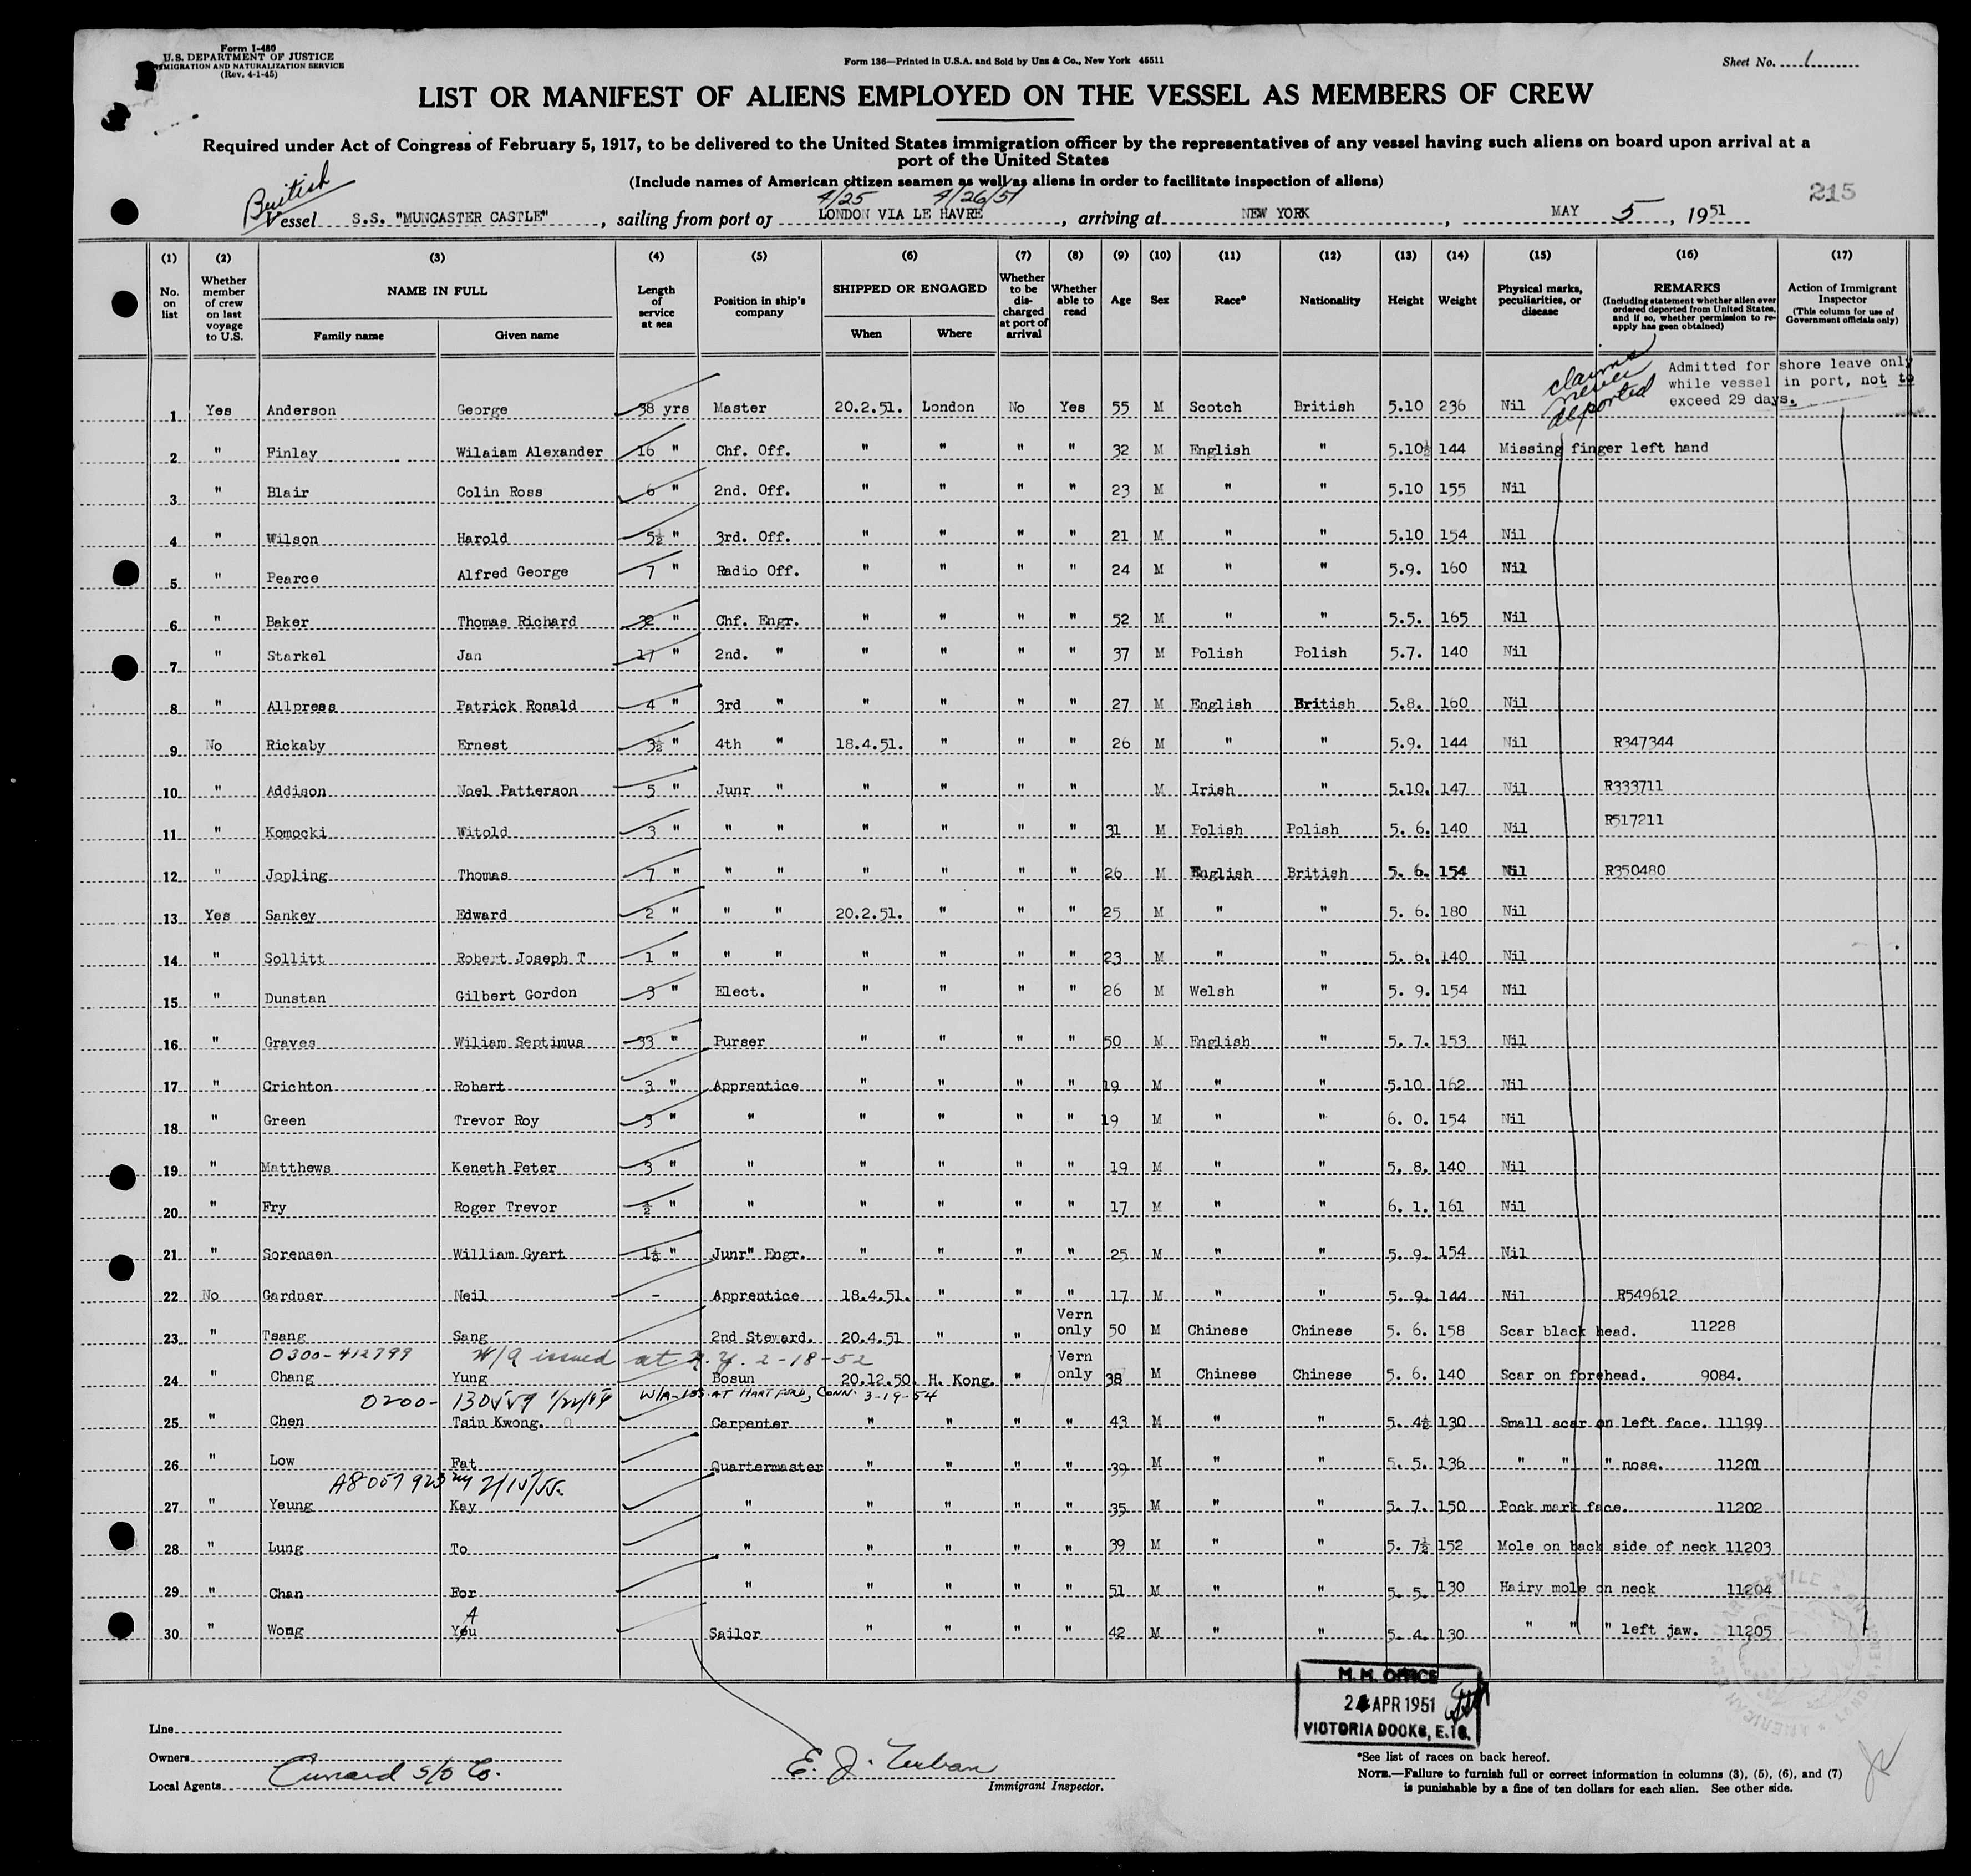 Form I-480
U.S. DEPARTMENT OF JUSTICE
IMMIGRATION AND NATURALIZATION SERVICE
(Rev. 4-1-45)
Form 136—Printed in U.S.A. and Sold by Unz & Co., New York 45511
Sheet No. 1
LIST OR MANIFEST OF ALIENS EMPLOYED ON THE VESSEL AS MEMBERS OF CREW
Required under Act of Congress of February 5, 1917, to be delivered to the United States immigration officer by the representatives of any vessel having such aliens on board upon arrival at a
port of the United States
(Include names of American citizen seamen as well as aliens in order to facilitate inspection of aliens)
215
British
4/25 4/26/51
Vessel S.S. "MUNCASTER CASTLE", sailing from port of LONDON VIA LE HAVRE, arriving at NEW YORK, MAY 5, 1951
(1) (2) (3) (4) (5) (6) (7) (8) (9) (10) (11) (12) (13) (14) (15) (16) (17)
No. on list
Whether member of crew on last voyage to U.S.
NAME IN FULL
Family name Given name
Length of service at sea
Position in ship's company
SHIPPED OR ENGAGED
When Where
Whether to be discharged at port of arrival
Whether able to read
Age Sex Race* Nationality Height Weight
Physical marks, peculiarities, or disease
REMARKS
(Including statement whether alien ever ordered deported from United States, and if so, whether permission to re-apply has been obtained)
Action of Immigrant Inspector
(This column for use of Government officials only)
claims never deported
Admitted for shore leave only
while vessel in port, not to
exceed 29 days.
1 Yes Anderson George 38 yrs Master 20.2.51. London No Yes 55 M Scotch British 5.10 236 Nil
2 " Finlay Wilaiam Alexander 16 " Chf. Off. " " " " 32 M English " 5.10½ 144 Missing finger left hand
3 " Blair Colin Ross 6 " 2nd. Off. " " " " 23 M " " 5.10 155 Nil
4 " Wilson Harold 5½ " 3rd. Off. " " " " 21 M " " 5.10 154 Nil
5 " Pearce Alfred George 7 " Radio Off. " " " " 24 M " " 5.9. 160 Nil
6 " Baker Thomas Richard 32 " Chf. Engr. " " " " 52 M " " 5.5. 165 Nil
7 " Starkel Jan 17 " 2nd. " " " " " 37 M Polish Polish 5.7. 140 Nil
8 " Allpress Patrick Ronald 4 " 3rd " " " " " 27 M English British 5.8. 160 Nil
9 No Rickaby Ernest 3½ " 4th " 18.4.51. " " " 26 M " " 5.9. 144 Nil R347344
10 " Addison Noel Patterson 5 " Junr " " " " " M Irish " 5.10. 147 Nil R333711
11 " Komocki Witold 3 " " " " " " " 31 M Polish Polish 5. 6. 140 Nil R517211
12 " Jopling Thomas 7 " " " " " " " 26 M English British 5. 6. 154 Nil R350480
13 Yes Sankey Edward 2 " " " 20.2.51. " " " 25 M " " 5. 6. 180 Nil
14 " Sollitt Robert Joseph T 1 " " " " " " " 23 M " " 5. 6. 140 Nil
15 " Dunstan Gilbert Gordon 3 " Elect. " " " " 26 M Welsh " 5. 9. 154 Nil
16 " Graves Wiliam Septimus 33 " Purser " " " " 50 M English " 5. 7. 153 Nil
17 " Crichton Robert 3 " Apprentice " " " " 19 M " " 5.10 162 Nil
18 " Green Trevor Roy 3 " " " " " " 19 M " " 6. 0. 154 Nil
19 " Matthews Keneth Peter 3 " " " " " " 19 M " " 5. 8. 140 Nil
20 " Fry Roger Trevor ½ " " " " " " 17 M " " 6. 1. 161 Nil
21 " Sorensen William Gyert 1½ " Junr" Engr. " " " " 25 M " " 5. 9. 154 Nil
22 No Gardner Neil - Apprentice 18.4.51. " " " 17 M " " 5. 9. 144 Nil R549612
23 " Tsang Sang 2nd Steward. 20.4.51 " " Vern only 50 M Chinese Chinese 5. 6. 158 Scar black head. 11228
0300-412799 W/A issued at N.Y. 2-18-52
24 " Chang Yung Bosun 20.12.50. H. Kong. " Vern only 38 M Chinese Chinese 5. 6. 140 Scar on forehead. 9084.
0200- W/A-iss. AT HARTFORD, CONN. 3-19-54
25 " Chen Tsin Kwong. Carpenter " " " " 43 M " " 5. 4½ 130 Small scar on left face. 11199
26 " Low Fat Quartermaster " " " " 39 M " " 5. 5. 136 " " " nose. 11201
A8 057 923
27 " Yeung Kay " " " " " 35 M " " 5. 7. 150 Pock mark face. 11202
28 " Lung To " " " " " 39 M " " 5. 7½ 152 Mole on back side of neck 11203
29 " Chan For " " " " " 51 M " " 5. 5. 130 Hairy mole on neck 11204
A
30 " Wong Yeu Sailor " " " " 42 M " " 5. 4. 130 " " " left jaw. 11205
M. M. OFFICE
APR 1951
VICTORIA DOCKS, E.16.
Line
Owners
Local Agents Cunard S/S Co.
E. J.
Immigrant Inspector.
*See list of races on back hereof.
NOTE.—Failure to furnish full or correct information in columns (3), (5), (6), and (7)
is punishable by a fine of ten dollars for each alien. See other side.